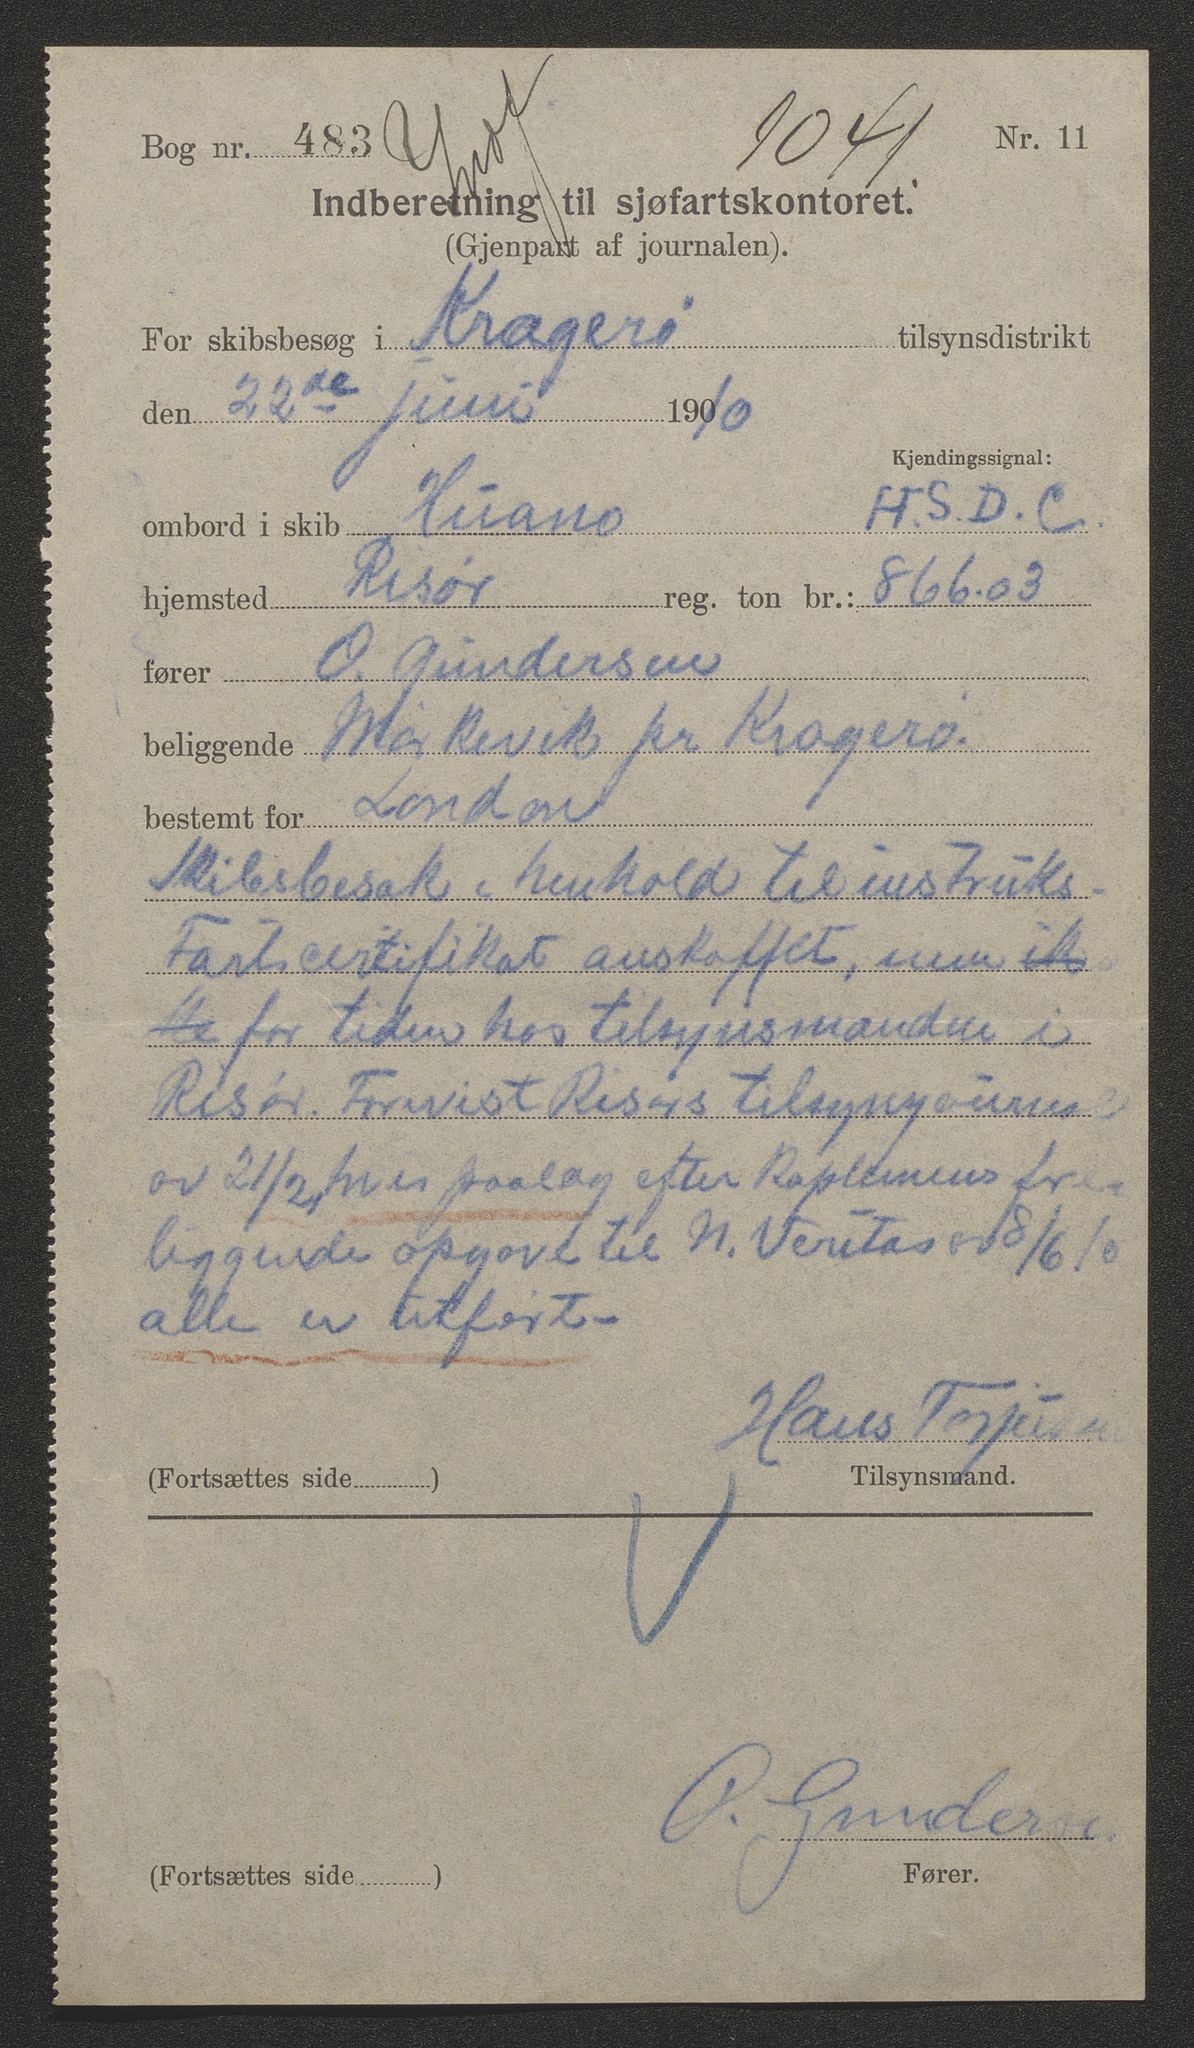 Bog nr. 483 1041 Nr. 11
Indberetning til sjøfartskontoret.
(Gjenpart af journalen).
For skibsbesøg i Kragerø tilsynsdistrikt
den 22de juni 1910
Kjendingssignal:
ombord i skib Huano H.S.D.C.
hjemsted Risør reg. ton br.: 866.03
fører O. Gundersen
beliggende Mørkevik pr Kragerø.
bestemt for London
Skibsbesøk i henhold til instruks.
Fartscertifikat anskaffet, men ik
ke for tiden hos tilsynsmanden i
Risør. Forevist Risørs tilsynsjournal
av 21/2, hvis paalæg efter kapteinens fore
liggende opgave til N. Veritas av 8/6 10
alle er utført-
Hans
(Fortsættes side ) Tilsynsmand.
O. Gundersen.
(Fortsættes side ) Fører.